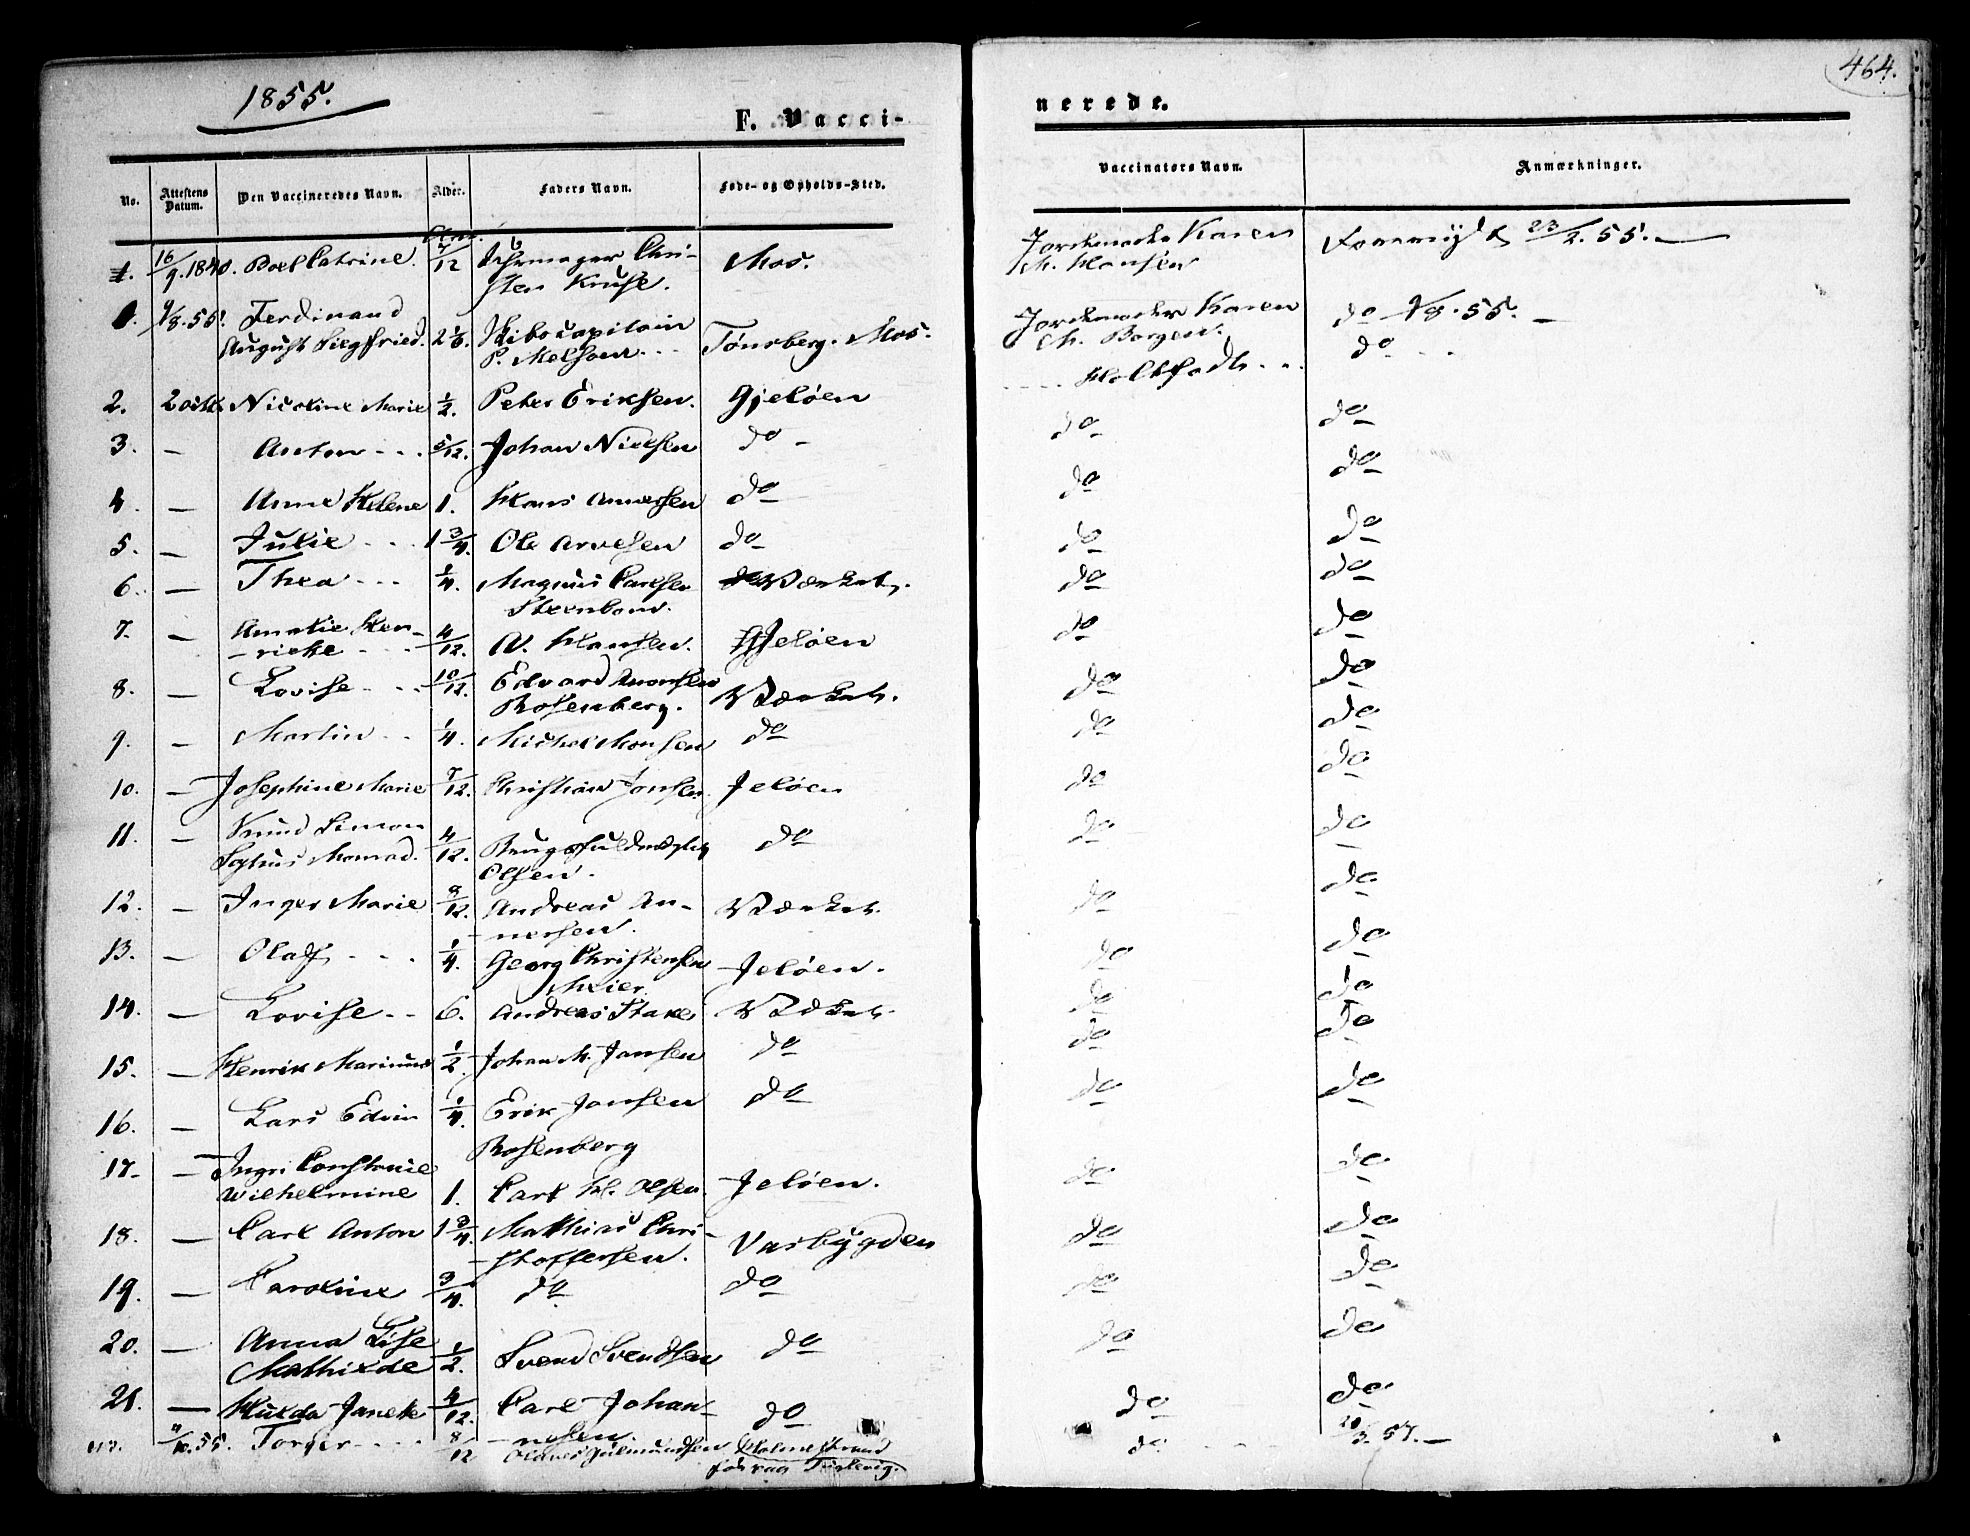 1855.
464.
F. Vacci-
nerede.
No. Attestens Datum. Den Vaccineredes Navn. Alder. Faders Navn. Føde- og Opholds-Sted. Vaccinators Navn. Anmærkninger.
1. 16/9.1840. Boel Catrine. 7/12 Chri- Mos. Jordemoder Karen 23/2.55.
sten Kruse. M. Hansen
1. 9/8.55. Ferdinand Jordemoder Karen do 9/8.55.
August Siegfried. Skibscapitain M. Borgen.
P. Melsom Tønsberg. Mos. do
Holtstadh
2. Nicoline Marie 1/2. Peter Eriksen. Gjeløen do do
3. — Anton 5/12. Johan Nielsen do do do
4. — Anne Helene 1. Hans Andersen do do do
5. — Julie 1 3/4. Ole Arvesen do do do
6. — Thea 1/4. Magnus Carlsen Værket. do do
Steenbom.
7. — Amalie Hen- 4/12. A. Hansen. Jeløen do do
-rieke
8. — Lovise 10/12. Edvard Monsen Værket. do do
Rosenberg.
9. — Martin 1/4. Michel Monsen do do do
10. — Josephine Marie 7/12. Christian Jonsen. Jeløen do do
11. — Knud Simon 4/12. do do do
Sophus Monrad. Olsen.
12. — Inger Marie 9/12. Andreas An- Værket. do do
-nersen.
13. — Olaf 1/4. Georg Christensen Jeløen. do do
Meier.
14. — Lovise 6. Andreas Stake Værket. do do
15. — Henrik Marinus 1/2. Johan M. Jansen do do do
16. — Lars Edvin 1/4. Erik Jansen do do do
Rosenberg
17. — Ingri Constanie
Wilhelmine 1. Carl H. Olsen. Jeløen. do do
18. — Carl Anton 1 3/4. Mathias Chri- Varbygden do do
-stoffersen.
19. — Caroline 3/4. do do do do
20. — Anna Lise
Mathilde 1/2. Svend Svendsen do do do
21. — Hulda Janeke 4/12. Carl Johan- do do do
-nesen.
55. Torger 8/12 Gulmundsen Holmestrand do 57.